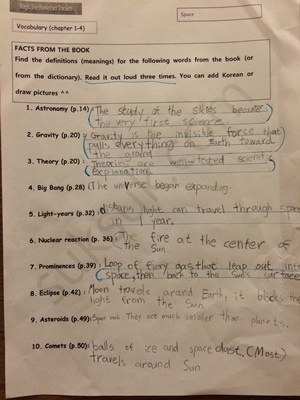 Magic Treehouse Space
Space
Vocabulary (chapter 1-4)
FACTS FROM THE BOOK
Find the definitions (meanings) for the following words from the book (or
from the dictionary). Read it out loud three times. You can add Korean or
draw pictures ^^
1. Astronomy (p.14) The study of the skies became
the very first science.
2. Gravity (p.20) Gravity is the invisible force that
pulls everything on Earth toward
the ground
3. Theory (p.20): Theories are well-tested scientific
explanations
4. Big Bang (p.28) (The universe began expanding.
5. Light-years (p.32) : distans light can travel through space
in 1 year.
6. Nuclear reaction (p. 36): The fire at the center of
the Sun.
7. Prominences (p.39) : Loop of fiery gas that leap out into
space, then back to the Sun's surface
8. Eclipse (p.42) : Moon travels around Earth, it blocks the
light from the Sun.
9. Asteroids (p.49): Space rock They are much smaller than planets.
10. Comets (p.50): balls of ice and space dust. (Most)
travels around Sun.